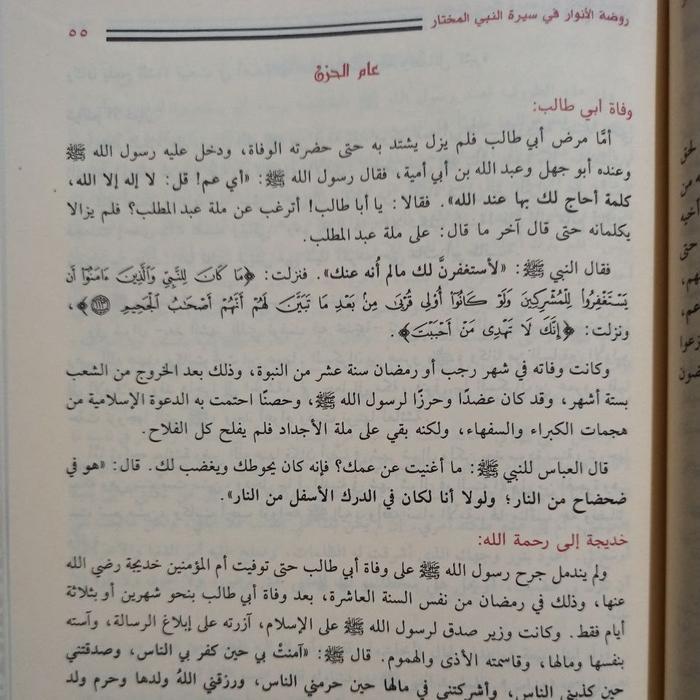 روضة الأنوار في سيرة النبي المختار
٥٥
عام الحزن
وفاة أبي طالب:
أمَّا مرض أبي طالب فلم يزل يشتد به حتى حضرته الوفاة، ودخل عليه رسول الله ﷺ
وعنده أبو جهل وعبد الله بن أبي أمية، فقال رسول الله ﷺ: «أي عم! قل: لا إله إلا الله،
كلمة أحاج لك بها عند الله». فقالا: يا أبا طالب! أترغب عن ملة عبد المطلب؟ فلم يزالا
يكلمانه حتى قال آخر ما قال: على ملة عبد المطلب.
فقال النبي ﷺ: «لأستغفرنَّ لك مالم أُنه عنك». فنزلت: ﴿مَا كَانَ لِلنَّبِيِّ وَالَّذِينَ ءَامَنُوٓا۟ أَن
يَسْتَغْفِرُوا۟ لِلْمُشْرِكِينَ وَلَوْ كَانُوٓا۟ أُو۟لِى قُرْبَىٰ مِنۢ بَعْدِ مَا تَبَيَّنَ لَهُمْ أَنَّهُمْ أَصْحَٰبُ الْجَحِيمِ ۝١١٣﴾،
ونزلت: ﴿إِنَّكَ لَا تَهْدِى مَنْ أَحْبَبْتَ﴾.
وكانت وفاته في شهر رجب أو رمضان سنة عشر من النبوة، وذلك بعد الخروج من الشعب
بستة أشهر، وقد كان عضدًا وحرزًا لرسول الله ﷺ، وحصنًا احتمت به الدعوة الإسلامية من
هجمات الكبراء والسفهاء، ولكنه بقي على ملة الأجداد فلم يفلح كل الفلاح.
قال العباس للنبي ﷺ: ما أغنيت عن عمك؟ فإنه كان يحوطك ويغضب لك. قال: «هو في
ضحضاح من النار؛ ولولا أنا لكان في الدرك الأسفل من النار».
خديجة إلى رحمة الله:
ولم يندمل جرح رسول الله ﷺ على وفاة أبي طالب حتى توفيت أم المؤمنين خديجة رضي الله
عنها، وذلك في رمضان من نفس السنة العاشرة، بعد وفاة أبي طالب بنحو شهرين أو بثلاثة
أيام فقط. وكانت وزير صدق لرسول الله ﷺ على الإسلام، آزرته على إبلاغ الرسالة، وآسته
بنفسها ومالها، وقاسمته الأذى والهموم. قال ﷺ: «آمنتْ بي حين كفر بي الناس، وصدقتني
حين كذبني الناس، وأشركتني في مالها حين حرمني الناس، ورزقني اللهُ ولدها وحرم ولد